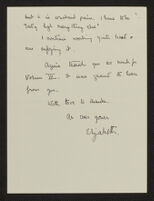 but is in constant pain. I know the
"only high everything else"
I continue working quite hard &
am enjoying it.
Again thank you so much for
Volume II. It was grand to hear
from you.
With love to
As ever yours
Elizabeth.